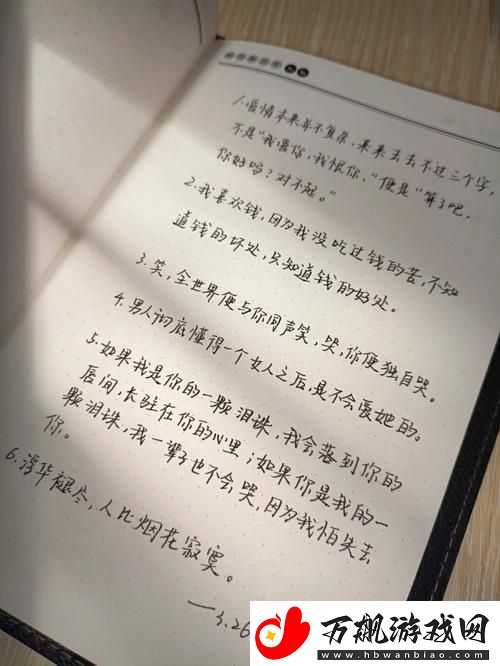 1.爱情本来并不复杂,来来去去不过三个字,
不是“我爱你,我恨你,”便是“算了吧,
你好吗?对不起。”
2.我喜欢钱,因为我没吃过钱的苦,不知
道钱的坏处,只知道钱的好处。
3.笑,全世界便与你同声笑,哭,你便独自哭。
4.男人彻底懂得一个女人之后,是不会爱她的。
5.如果我是你的一颗泪珠,我会落到你的
唇间,长驻在你的心里;如果你是我的一
颗泪珠,我一辈子也不会哭,因为我怕失去
你。
6.浮华褪尽,人比烟花寂寞。
——3.26
万飙游戏网
www.hbwanbiao.com